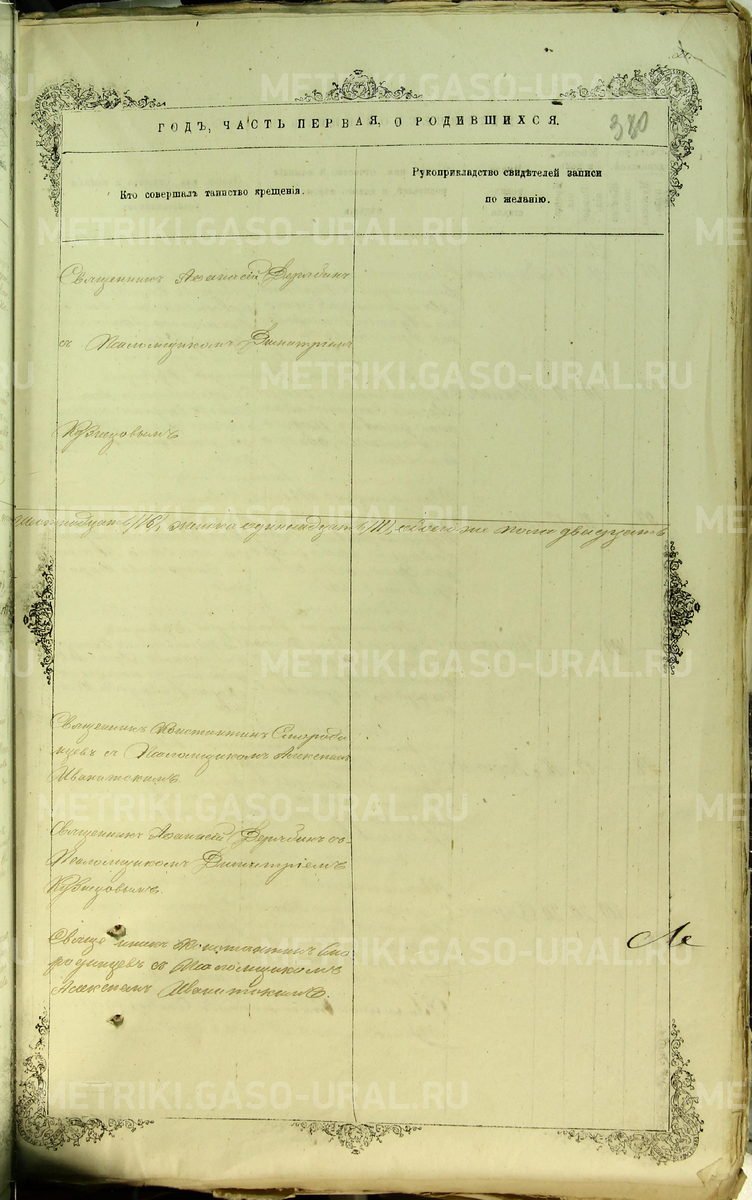 ГОДЪ, ЧАСТЬ ПЕРВАЯ, О РОДИВШИХСЯ.
380
Кто совершалъ таинство крещенія.
Рукоприкладство свидѣтелей записи
по желанію.
Священникъ Аѳанасій Дерябинъ
съ Псаломщикомъ Димитріемъ
Кузнецовымъ
/16/, женска одиннадцать /11/, обоего же пола двадцать
Священникъ Константинъ Смороди
нцевъ съ Псаломщикомъ Алексѣемъ
Иваницкимъ.
Священникъ Аѳанасій Дерябинъ со
Псаломщикомъ Димитріемъ
Кузнецовымъ.
Священникъ Константинъ Смо
родинцевъ съ Псаломщикомъ
Алексѣемъ Иваницкимъ.
METRIKI.GASO-URAL.RU